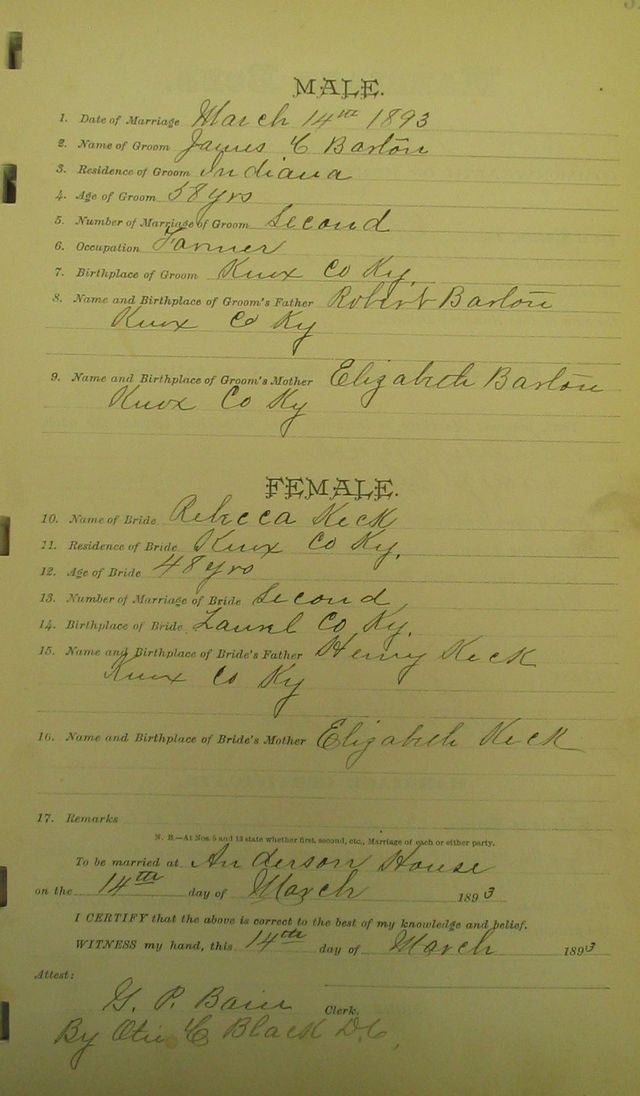 MALE.
1. Date of Marriage March 14th 1893
2. Name of Groom James C Barton
3. Residence of Groom Indiana
4. Age of Groom 58 yrs
5. Number of Marriage of Groom Second
6. Occupation Farmer
7. Birthplace of Groom Knox Co Ky.
8. Name and Birthplace of Groom's Father Robert Barton
Knox Co Ky
9. Name and Birthplace of Groom's Mother Elizabeth Barton
Knox Co Ky
FEMALE.
10. Name of Bride Rebecca Keck
11. Residence of Bride Knox Co Ky.
12. Age of Bride 48 yrs
13. Number of Marriage of Bride Second
14. Birthplace of Bride Laurel Co Ky.
15. Name and Birthplace of Bride's Father Henry Keck
Knox Co Ky
16. Name and Birthplace of Bride's Mother Elizabeth Keck
17. Remarks
N. B.—At Nos. 5 and 13 state whether first, second, etc., Marriage of each or either party.
To be married at Anderson House
on the 14th day of March 1893
I CERTIFY that the above is correct to the best of my knowledge and belief.
WITNESS my hand, this 14th day of March 1893
Attest:
G. P. Bain Clerk.
By Otis C Black D.C.